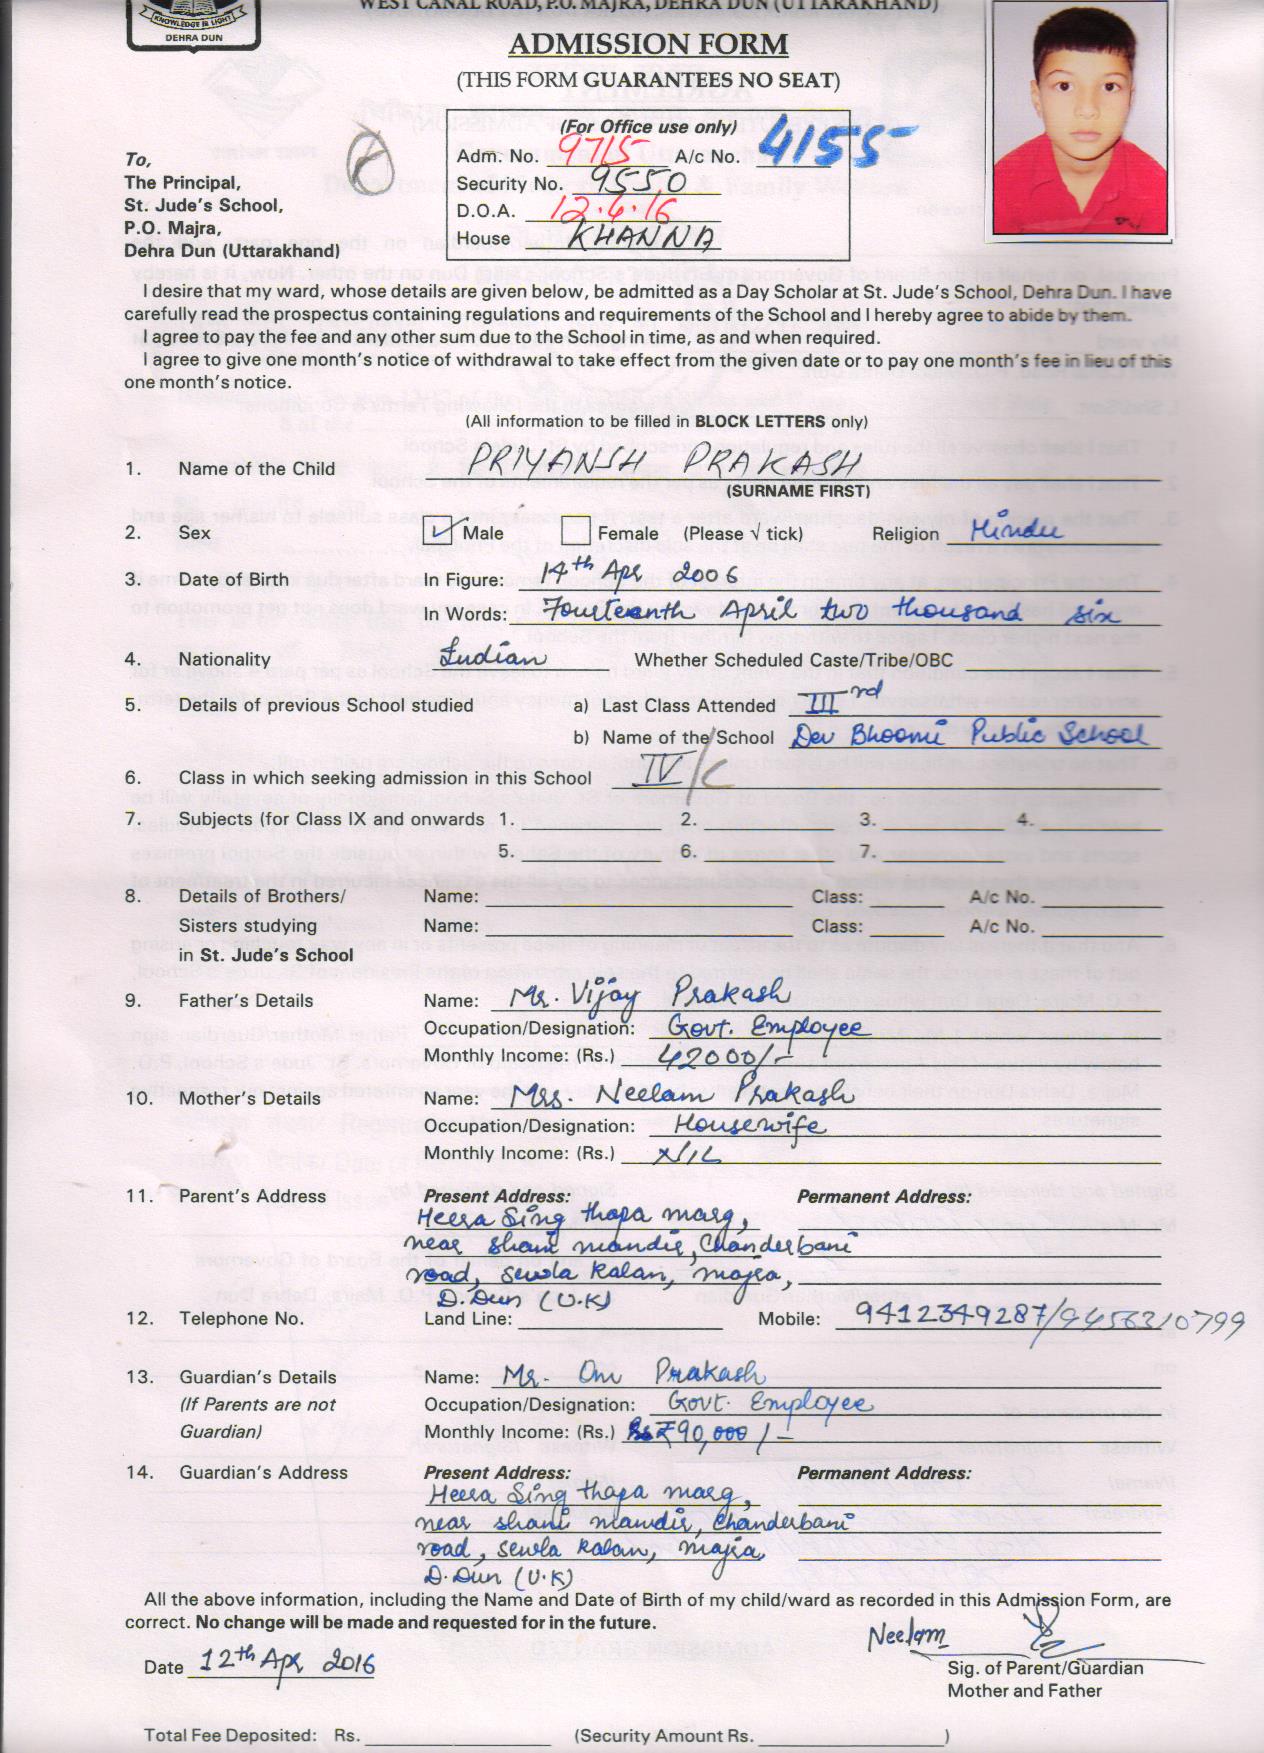 WEST CANAL ROAD, P.O. MAJRA, DEHRA DUN (UTTARAKHAND)
KNOWLEDGE IS LIGHT
DEHRA DUN
ADMISSION FORM
(THIS FORM GUARANTEES NO SEAT)
(For Office use only)
Adm. No. 9715 A/c No. 4155
Security No. 9550
D.O.A. 12.4.16
House KHANNA
To,
The Principal,
St. Jude's School,
P.O. Majra,
Dehra Dun (Uttarakhand)
I desire that my ward, whose details are given below, be admitted as a Day Scholar at St. Jude's School, Dehra Dun. I have
carefully read the prospectus containing regulations and requirements of the School and I hereby agree to abide by them.
I agree to pay the fee and any other sum due to the School in time, as and when required.
I agree to give one month's notice of withdrawal to take effect from the given date or to pay one month's fee in lieu of this
one month's notice.
(All information to be filled in BLOCK LETTERS only)
1. Name of the Child PRIYANSH PRAKASH
(SURNAME FIRST)
2. Sex Male Female (Please √ tick) Religion Hindu
3. Date of Birth In Figure: 14th Apr 2006
In Words: Fourteenth April two thousand six
4. Nationality Indian Whether Scheduled Caste/Tribe/OBC
5. Details of previous School studied a) Last Class Attended III rd
b) Name of the School Dev Bhoomi Public School
6. Class in which seeking admission in this School IV/C
7. Subjects (for Class IX and onwards 1. 2. 3. 4.
5. 6. 7.
8. Details of Brothers/ Name: Class: A/c No.
Sisters studying Name: Class: A/c No.
in St. Jude's School
9. Father's Details Name: Mr. Vijay Prakash
Occupation/Designation: Govt. Employee
Monthly Income: (Rs.) 42000/-
10. Mother's Details Name: Mrs. Neelam Prakash
Occupation/Designation: Housewife
Monthly Income: (Rs.) NIL
11. Parent's Address Present Address: Permanent Address:
Heera Sing thapa marg,
near shani mandir, Chanderbani
road, sewla kalan, majra,
D.Dun (U.K)
12. Telephone No. Land Line: Mobile: 9412349287/9456310799
13. Guardian's Details Name: Mr. Om Prakash
(If Parents are not Occupation/Designation: Govt. Employee
Guardian) Monthly Income: (Rs.) ₹90,000/-
14. Guardian's Address Present Address: Permanent Address:
Heera Sing thapa marg,
near shani mandir, Chanderbani
road, sewla kalan, majra,
D.Dun (U.K)
All the above information, including the Name and Date of Birth of my child/ward as recorded in this Admission Form, are
correct. No change will be made and requested for in the future.
Neelam
Date 12th Apr 2016
Sig. of Parent/Guardian
Mother and Father
Total Fee Deposited: Rs. (Security Amount Rs. )